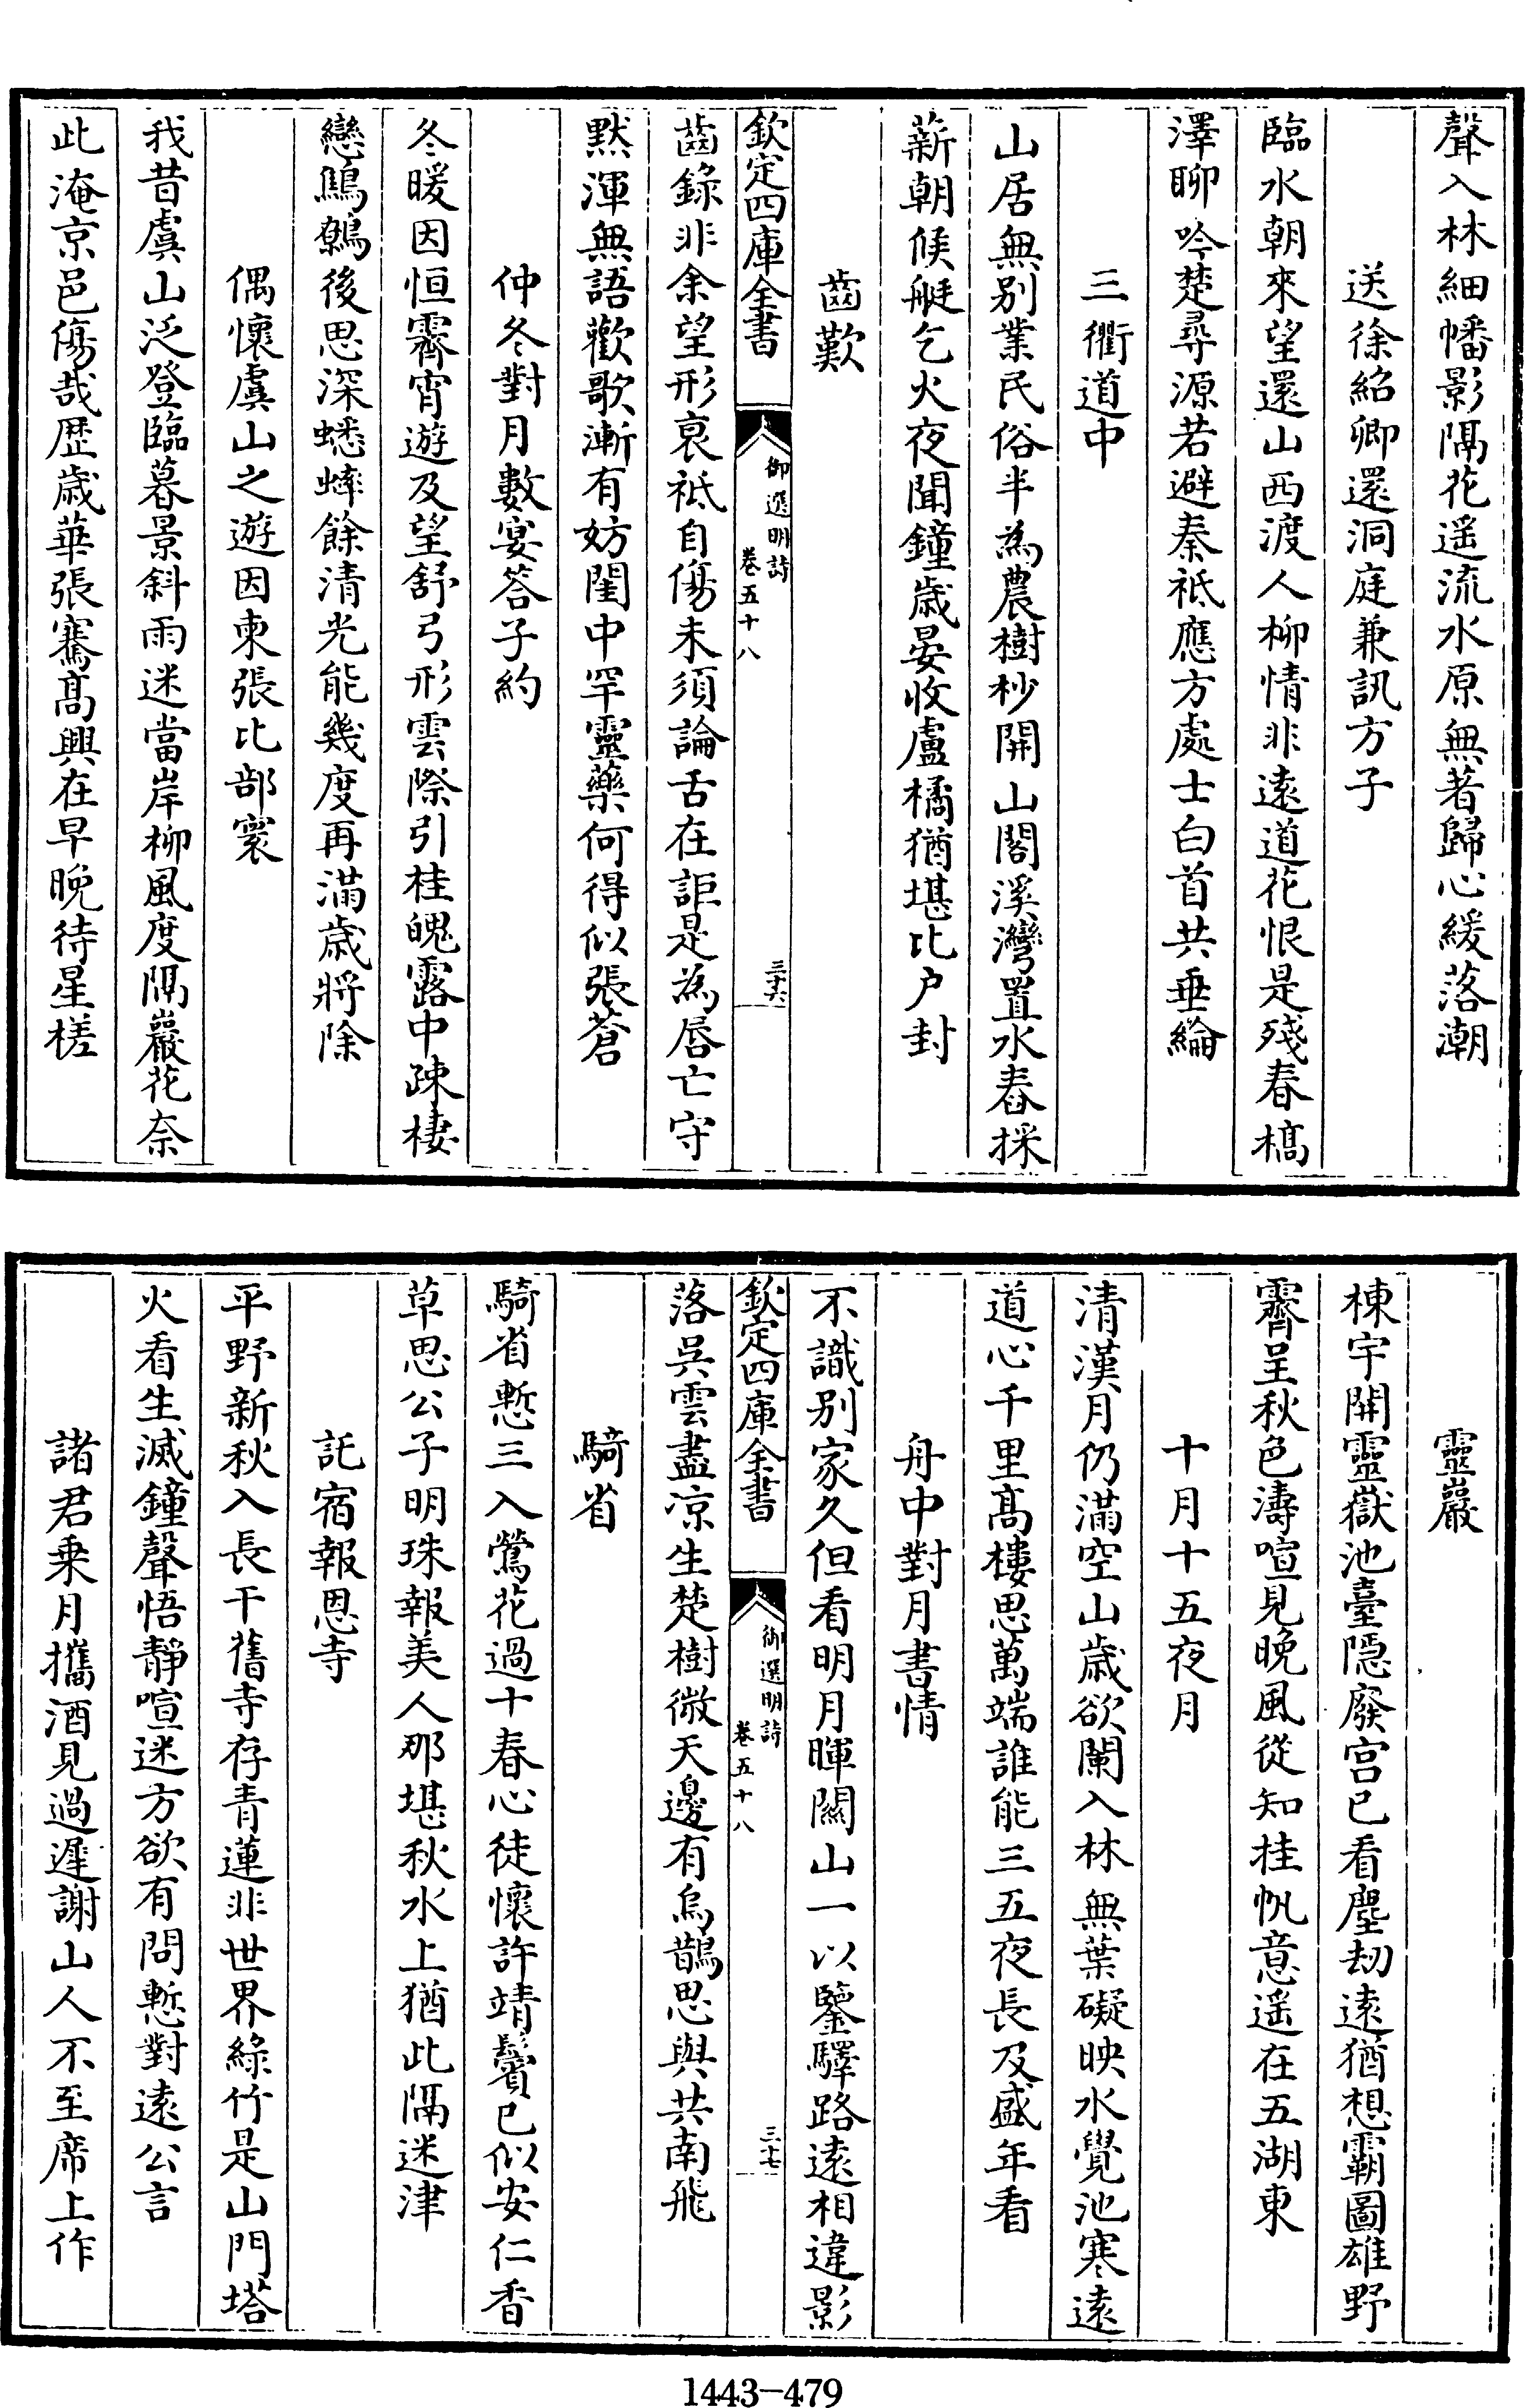 聲入林細幡影隔花遥流水原無著歸心緩落潮
送徐紹卿還洞庭兼訊方子
臨水朝來望還山西渡人柳情非遠道花恨是殘春槁
澤聊吟楚尋源若避秦祗應方處士白首共垂綸
三衢道中
山居無别業民俗半為農樹杪開山閣溪灣置水舂採
薪朝候艇乞火夜聞鐘歲晏收盧橘猶堪比户封
齒歎
欽定四庫全書
御選明詩
卷五十八
三十六
齒錄非余望形衰祗自傷未須論舌在詎是為唇亡守
黙渾無語歡歌漸有妨閨中罕靈藥何得似張蒼
仲冬對月數宴答子約
冬暖因恒霽宵遊及望舒弓形雲際引桂魄露中疎棲
戀鷦鷯後思深蟋蟀餘清光能幾度再滿歲將除
偶懷虞山之遊因柬張比部寰
我昔虞山泛登臨暮景斜雨迷當岸柳風度隔巖花奈
此淹京邑傷哉歴歲華張騫髙興在早晚待星槎
靈巖
棟宇開靈嶽池臺隠廢宫已看塵刼遠猶想霸圖雄野
霽呈秋色濤喧見晚風從知挂帆意遥在五湖東
十月十五夜月
清漢月仍滿空山歲欲闌入林無葉礙映水覺池寒遠
道心千里髙樓思萬端誰能三五夜長及盛年看
舟中對月書情
不識别家久但看明月暉關山一以鑒驛路遠相違影
欽定四庫全書
御選明詩
卷五十八
三十七
落吳雲盡凉生楚樹微天邊有烏鵲思與共南飛
騎省
騎省慙三入鶯花過十春心徒懷許靖鬢已似安仁香
草思公子明珠報美人那堪秋水上猶此隔迷津
託宿報恩寺
平野新秋入長干舊寺存青蓮非世界綠竹是山門塔
火看生滅鐘聲悟靜喧迷方欲有問慙對遠公言
諸君乗月攜酒見過遲謝山人不至席上作
1443-479